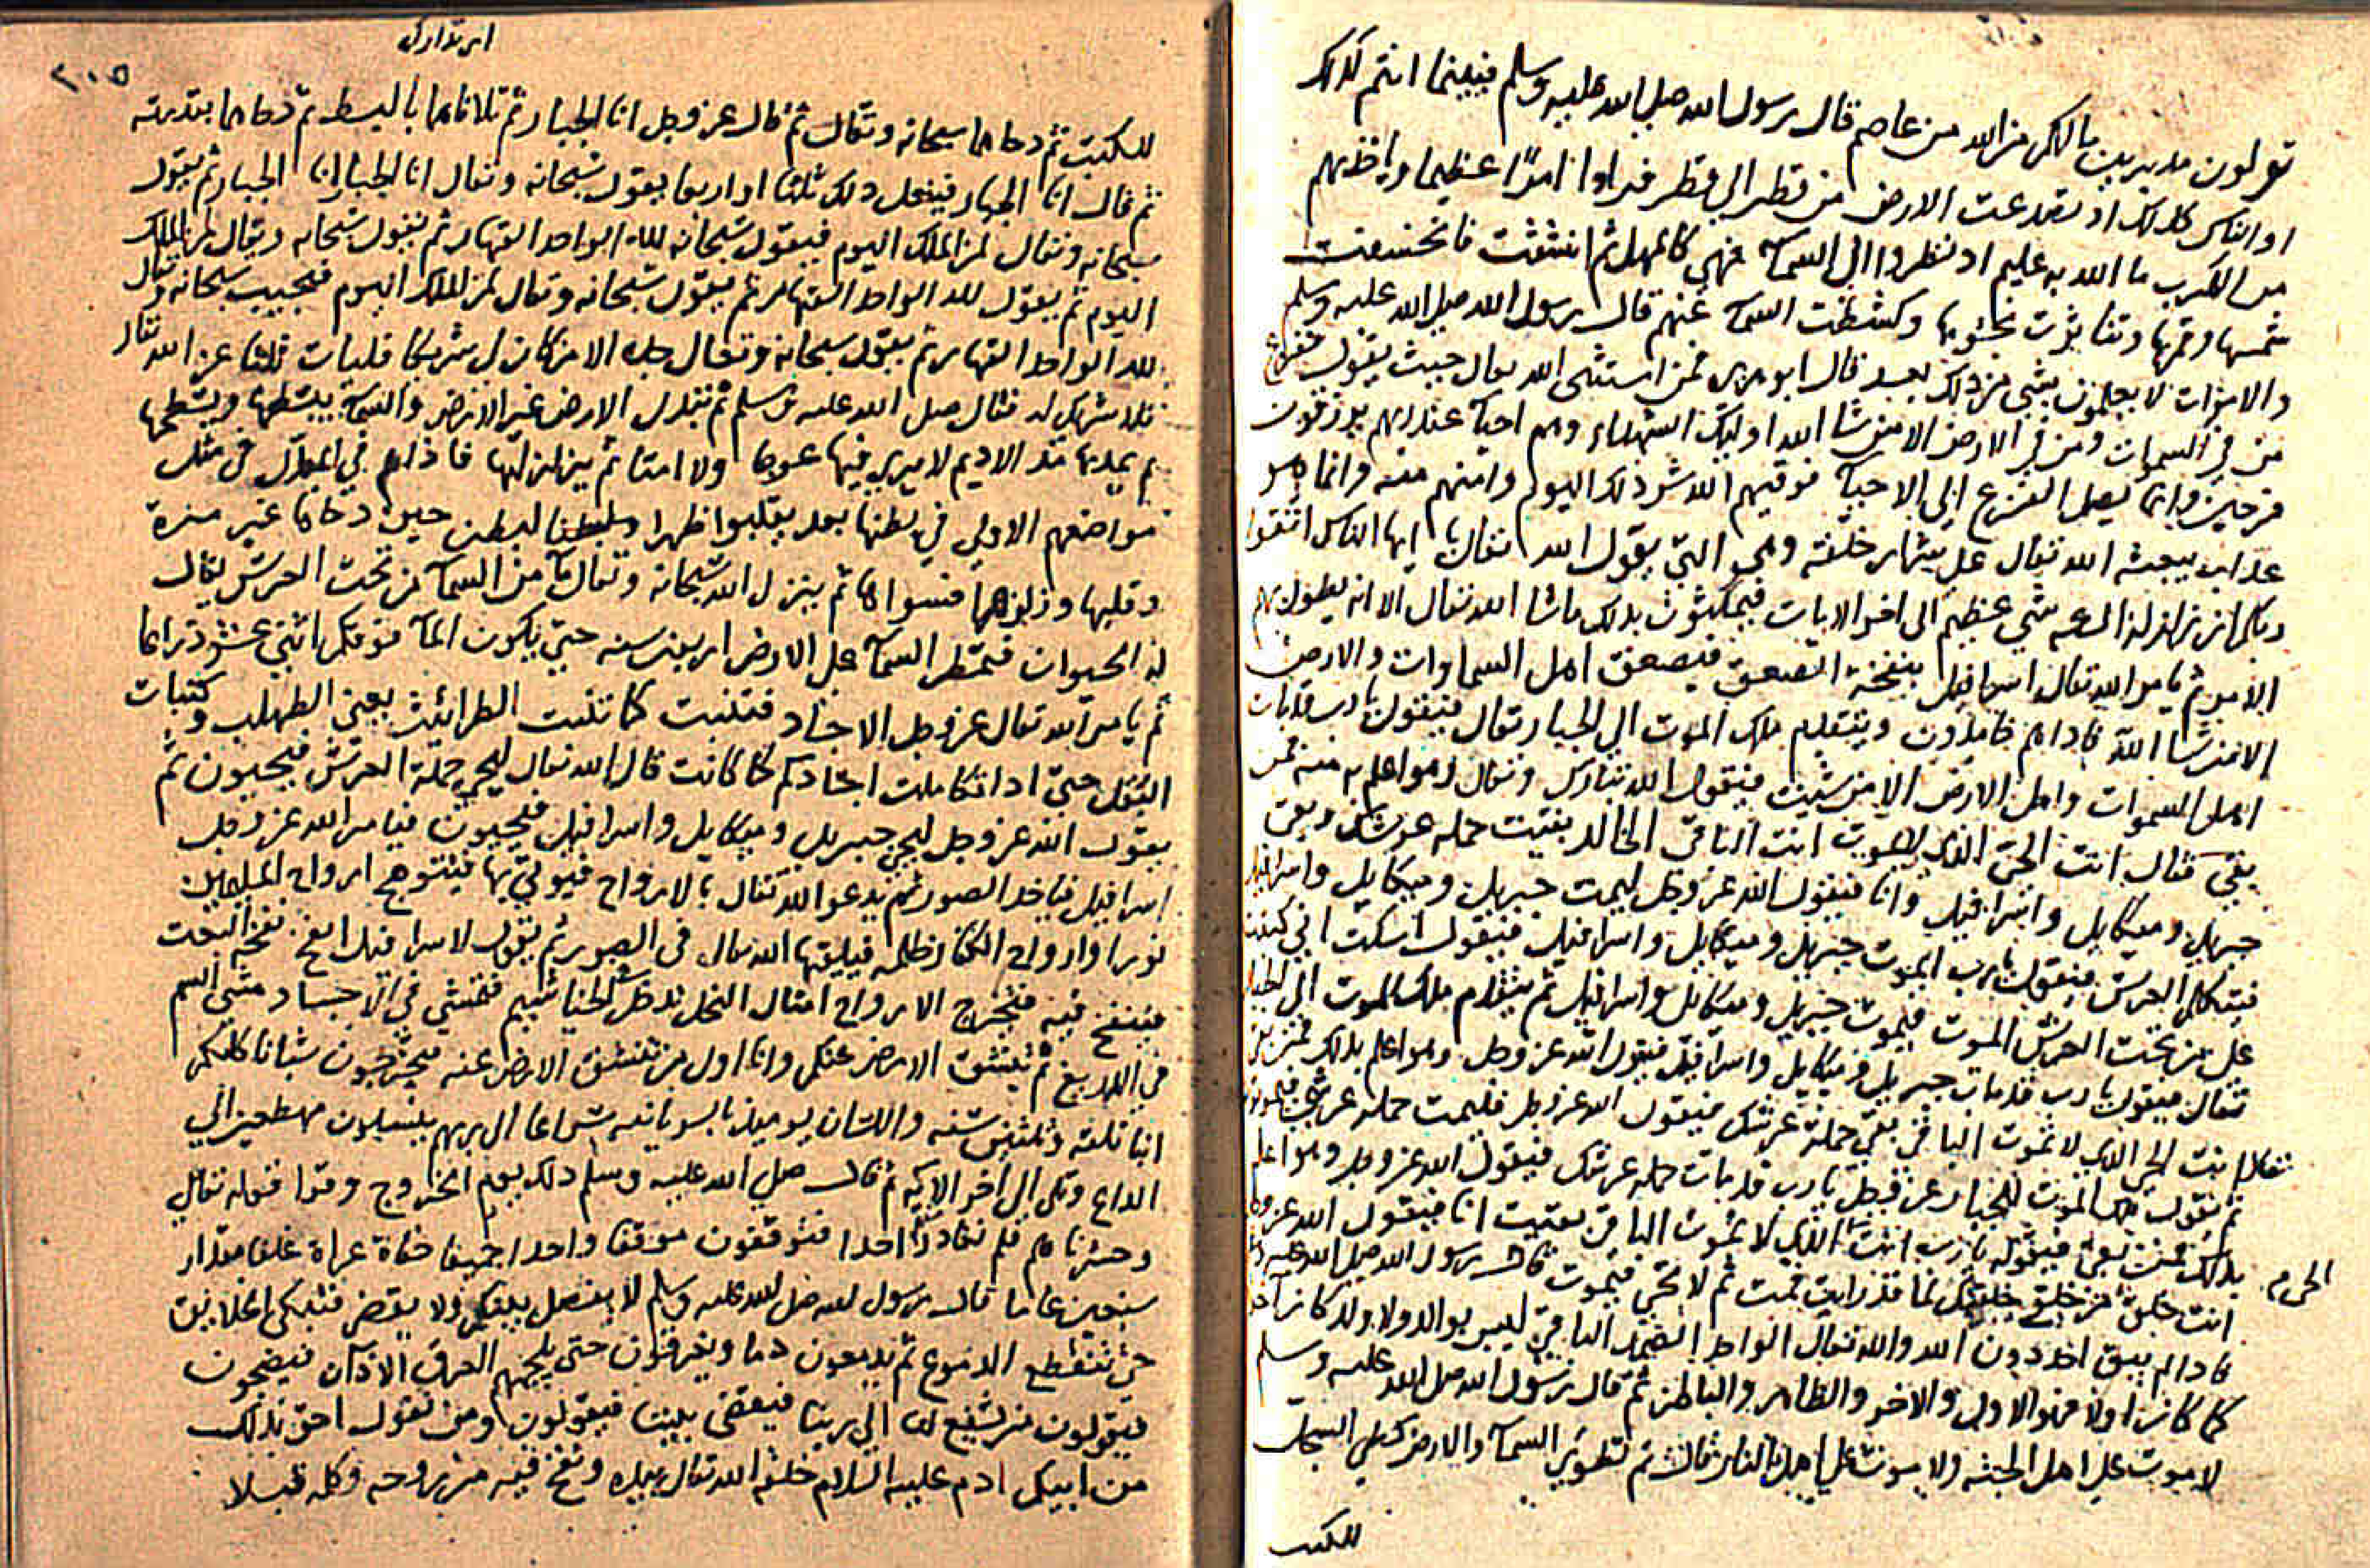 تولون مدبرين مالكم من الله من عاصم قال رسول الله صلي الله عليه وسلم فبينما انتم كذلك
او الناس كذلك اد تصدعت الارض من قطر الي قطر فراوا امرًا عظيما واخذهم
من الكرب ما الله به عليم اد نظروا الي السمآ فهي كالمهل ثم انشقت فانخسفت
شمسها وقمرها وتناثرت نجومها وكشطت السمآ عنهم قال رسول الله صلي الله عليه وسلم
والاموات لا يعلمون بشي من ذلك بعد قال ابو هريره فمن استثني الله تعالي حيث يقول ففزع
من في السموات ومن في الارض الا من شا الله اوليك الشهداء وهم احيآ عند ربهم يرزقون
فرحين وانما يصل الفزع الي الاحيآ فوقيهم الله شر ذلك اليوم وامنهم منه وانما هو
عذاب يبعثه الله تعالي علي شرار خلقه وهي التي يقول الله تعالي يا ايها الناس اتقوا
ربكم ان زلزلة الساعه شي عظيم الي اخر الايات فيمكثون بذلك ماشا الله تعالي الا انه يطول بهم
الامر ثم يامر الله تعالي اسرافيل بنفخة الصعق فيصعق اهل السماوات والارض
الا من شا الله فاداهم خامدون ويتقدم ملك الموت الي الجبار تعالي فيقول يا رب قد مات
اهل السموات واهل الارض الا من شيت فيقول الله تبارك وتعالي وهو اعلم به منه فمن
بقي فقال انت الحي الذي لا يموت انت الباقي الخالد بقيت حمله عرشك وبقي
جبريل وميكايل واسرافيل وانا فيقول الله عز وجل ليمت جبريل وميكايل واسرافيل
فيتكلم العرش فيقول يا رب ايموت جبريل وميكايل واسرافيل فيقول اسكت اني كتبت
علي من تحت العرش الموت فيموت جبريل وميكايل واسرافيل ثم يتقدم ملك الموت الي الجبار
تعالي فيقول يا رب قد مات جبريل وميكايل واسرافيل فيقول الله عز وجل وهو اعلم بذلك فمن بقي
فقال انت الحي الذي لا تموت الباقي بقي حملة عرشك فيقول الله عز وجل فليمت حمله عرشي فيموتون
ثم يقول ملك الموت للجبار عز وجل يا رب قد مات حمله عرشك فيقول الله عز وجل وهو اعلم
بذلك فمن بقي فيقول يا رب انت الذي لا تموت الباقي بقيت انا فيقول الله عز وجل
انت خلق من خلقي خلقتك لما قد رايت فمت ثم لا تحي فيموت قال رسول الله صلي الله عليه
فادا لم يبق احد دون الله والله تعالي الواحد الصمد الباقي ليس بوالد ولا ولد كان آخرا
كما كان اولا فهو الاول والاخر والظاهر والباطن ثم قال رسول الله صلي الله عليه وسلم
لا موت علي اهل الجنه ولا موت علي اهل النار قال ثم تطوي السمآ والارض كطي السجل
للكتب
٢٠٥
للكتب ثم دحاهما سبحانه وتعالي ثم قال عز وجل انا الجبار ثم تلاقاهما بالبسط ثم دحاهما بقدرته
ثم قال انا الجبار فيفعل ذلك ثلثا او اربعا يقول سبحانه وتعالي انا الجبار انا الجبار ثم يقول
سبحانه وتعالي لمن الملك اليوم فيقول سبحانه لله الواحد القهار ثم يقول سبحانه وتعالي لمن الملك
اليوم ثم يقول لله الواحد القهار ثم يقول سبحانه وتعالي لمن الملك اليوم فيجيب سبحانه وتعالي
لله الواحد القهار ثم يقول سبحانه وتعالي جله الا من كان لي شريكا فليات ثلثا عز الله تعالي
فلا شريك له فقال صلي الله عليه وسلم ثم تبدل الارض غير الارض والسمآ يبسطها ويسطحها
ثم يمدها مد الاديم لا يري فيها عوجا ولا امتا ثم يزلزلها فاذا هم في المبدل في مثل
مواضعهم الاولي في بطنها بعد يقلبوا ظهرا وبطنا لبطن حين دحاها غير مرة
وقلبها وزلزلها فسواها ثم ينزل الله سبحانه وتعالي مآ من السمآ من تحت العرش يقال
له الحيوان فتمطر السمآ علي الارض اربعين سنه حتي يكون المآ فوقكم اثني عشر ذراعا
ثم يامر الله تعالي عز وجل الاجساد فتنبت كما تنبت الطراثيث يعني الطحلب وكنبات
البقل حتي ادا تكاملت اجسادكم كما كانت قال الله تعالي ليحي حملة العرش فيحيون ثم
يقول الله عز وجل ليحي جبريل وميكايل واسرافيل فيحيون فيامر الله عز وجل
اسرافيل فياخذ الصور ثم يدعو الله تعالي بالارواح فيوتي بها فيتوهج ارواح المسلمين
نورا وارواح الكفار ظلمه فيلقيها الله تعالي في الصور ثم يقول لاسرافيل انفخ نفخة البعث
فينفخ فيه فتخرج الارواح امثال النحل فتمشي في الاجساد مشي السم
في اللديغ ثم تنشق الارض عنكم وانا اول من تنشق الارض عنه فيخرجون شبانا كلكم
ابنا ثلثه وثلثين سنه واللسان يوميذ بالسريانيه سراعا الي ربهم ينسلون مهطعين الي
الداع وتلي الي اخر الايه ثم قال صلي الله عليه وسلم ذلك يوم الخروج وقرا قوله تعالي
وحشرناهم فلم نغادر منهم احدا فتوقفون موقفا واحدا جميعا حفاة عراة غلفا مقدار
سبعين عاما قال رسول الله صلي الله عليه وسلم لا يفصل بينكم ولا يقضي فتبكي الخلايق
حتي تنقطع الدموع ثم يدمعون دما ويغرقون حتي يلجمهم العرق الاذان فيضجون
فيقولون من يشفع لنا الي ربنا فيقضي بيننا فيقولون ومن نقول احق بذلك
من ابيكم ادم عليه السلام خلقه الله تعالي بيده ونفخ فيه من روحه وكلمه قبلا